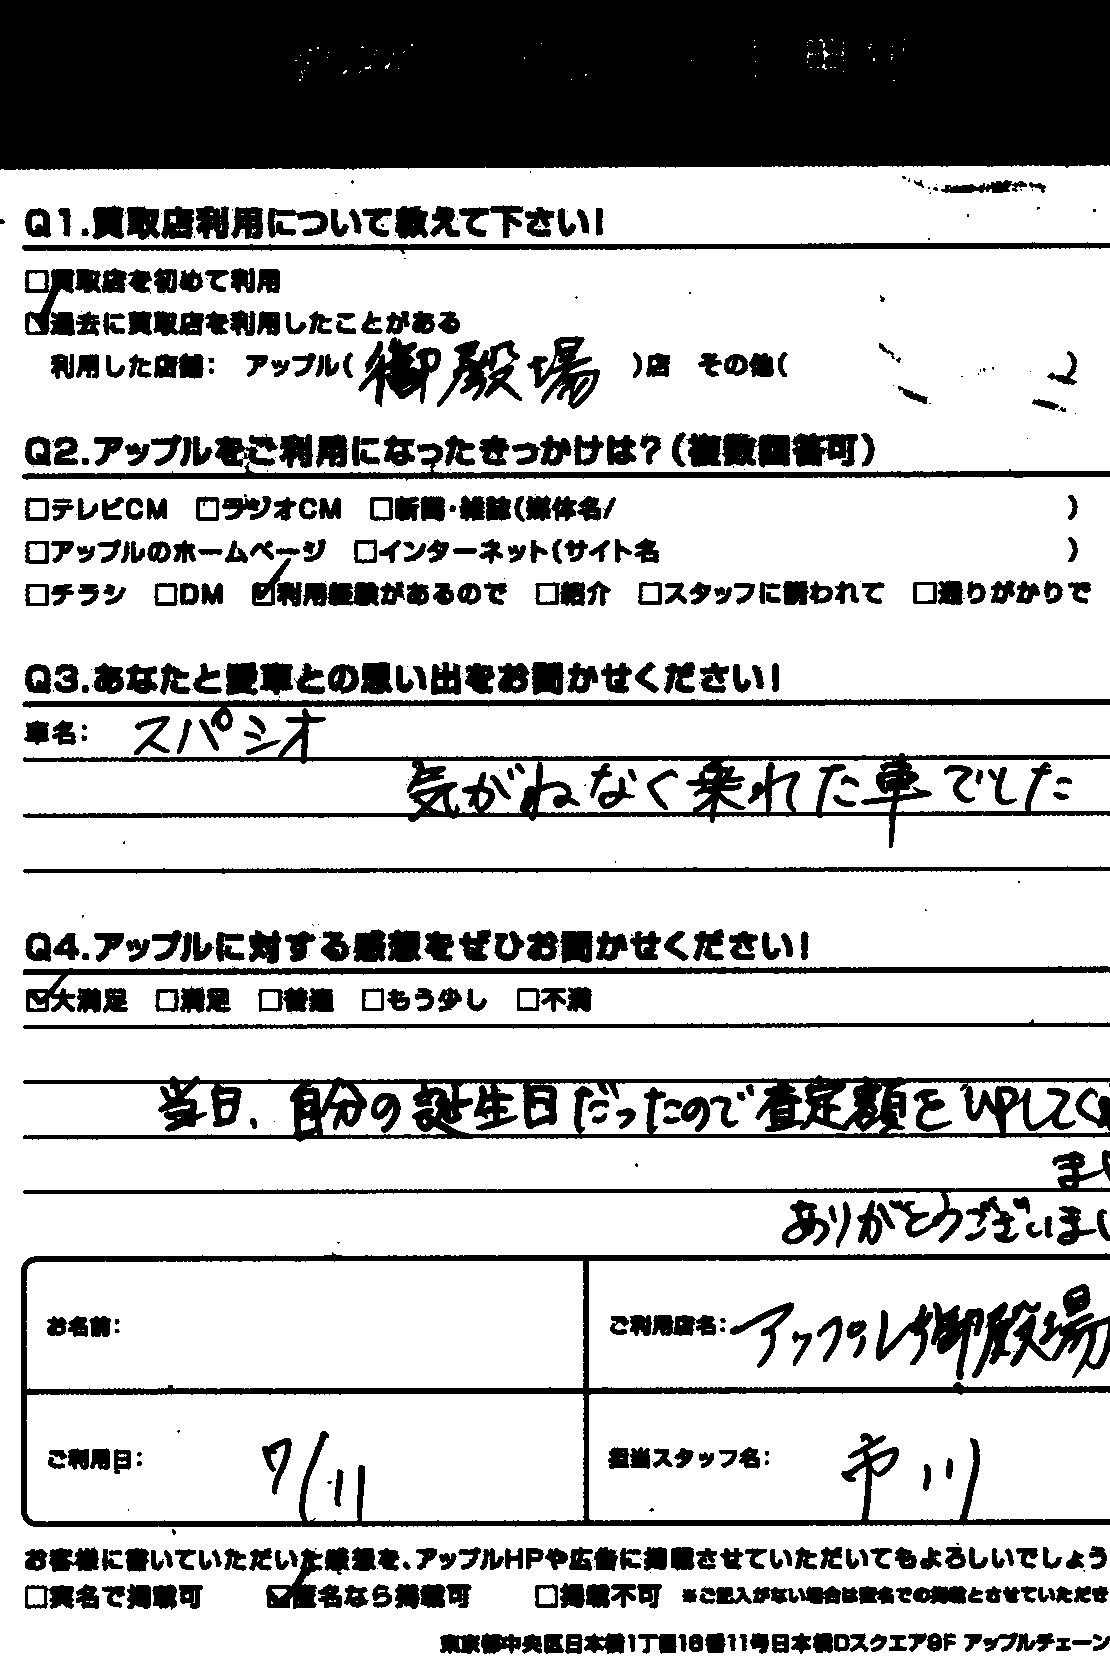 Q1.買取店利用について教えて下さい!
□買取店を初めて利用
☑過去に買取店を利用したことがある
利用した店舗: アップル(御殿場)店 その他( )
Q2.アップルをご利用になったきっかけは?(複数回答可)
□テレビCM □ラジオCM □新聞・雑誌(媒体名/ )
□アップルのホームページ □インターネット(サイト名 )
□チラシ □DM ☑利用経験があるので □紹介 □スタッフに誘われて □通りがかりで
Q3.あなたと愛車との思い出をお聞かせください!
車名: スパシオ
気がねなく乗れた車でした
Q4.アップルに対する感想をぜひお聞かせください!
☑大満足 □満足 □普通 □もう少し □不満
当日、自分の誕生日だったので査定額をUPしてく
まし
ありがとうございまし
お名前:
ご利用店名: アップル御殿場
ご利用日: 7/11
担当スタッフ名: 市川
お客様に書いていただいた感想を、アップルHPや広告に掲載させていただいてもよろしいでしょう
□実名で掲載可 ☑匿名なら掲載可 □掲載不可 ※ご記入がない場合は匿名での掲載とさせていただき
東京都中央区日本橋1丁目16番11号日本橋Dスクエア9F アップルチェーン